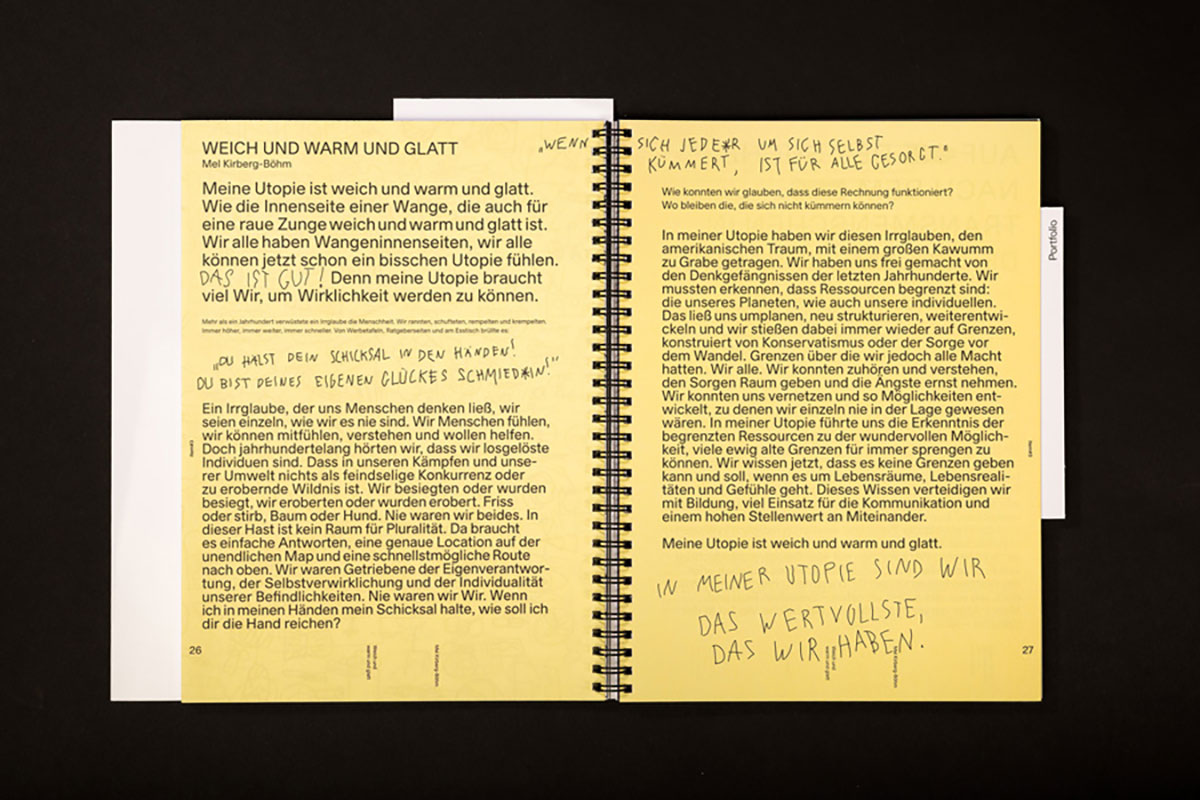 WEICH UND WARM UND GLATT
Mel Kirberg-Böhm
Meine Utopie ist weich und warm und glatt.
Wie die Innenseite einer Wange, die auch für
eine raue Zunge weich und warm und glatt ist.
Wir alle haben Wangeninnenseiten, wir alle
können jetzt schon ein bisschen Utopie fühlen.
DAS IST GUT! Denn meine Utopie braucht
viel Wir, um Wirklichkeit werden zu können.
Mehr als ein Jahrhundert verwüstete ein Irrglaube die Menschheit. Wir rannten, schufteten, rempelten und krempelten.
Immer höher, immer weiter, immer schneller. Von Werbetafeln, Ratgeberseiten und am Esstisch brüllte es:
„DU HÄLST DEIN SCHICKSAL IN DEN HÄNDEN!
DU BIST DEINES EIGENEN GLÜCKES SCHMIED*IN!“
Ein Irrglaube, der uns Menschen denken ließ, wir
seien einzeln, wie wir es nie sind. Wir Menschen fühlen,
wir können mitfühlen, verstehen und wollen helfen.
Doch jahrhundertelang hörten wir, dass wir losgelöste
Individuen sind. Dass in unseren Kämpfen und unse-
rer Umwelt nichts als feindselige Konkurrenz oder
zu erobernde Wildnis ist. Wir besiegten oder wurden
besiegt, wir eroberten oder wurden erobert. Friss
oder stirb, Baum oder Hund. Nie waren wir beides. In
dieser Hast ist kein Raum für Pluralität. Da braucht
es einfache Antworten, eine genaue Location auf der
unendlichen Map und eine schnellstmögliche Route
nach oben. Wir waren Getriebene der Eigenverantwor-
tung, der Selbstverwirklichung und der Individualität
unserer Befindlichkeiten. Nie waren wir Wir. Wenn
ich in meinen Händen mein Schicksal halte, wie soll ich
dir die Hand reichen?
26
Weich und
warm und glatt
Mel Kirberg-Böhm
„WENN SICH JEDE*R UM SICH SELBST
KÜMMERT, IST FÜR ALLE GESORGT.“
Wie konnten wir glauben, dass diese Rechnung funktioniert?
Wo bleiben die, die sich nicht kümmern können?
In meiner Utopie haben wir diesen Irrglauben, den
amerikanischen Traum, mit einem großen Kawumm
zu Grabe getragen. Wir haben uns frei gemacht von
den Denkgefängnissen der letzten Jahrhunderte. Wir
mussten erkennen, dass Ressourcen begrenzt sind:
die unseres Planeten, wie auch unsere individuellen.
Das ließ uns umplanen, neu strukturieren, weiterentwi-
ckeln und wir stießen dabei immer wieder auf Grenzen,
konstruiert von Konservatismus oder der Sorge vor
dem Wandel. Grenzen über die wir jedoch alle Macht
hatten. Wir alle. Wir konnten zuhören und verstehen,
den Sorgen Raum geben und die Ängste ernst nehmen.
Wir konnten uns vernetzen und so Möglichkeiten ent-
wickelt, zu denen wir einzeln nie in der Lage gewesen
wären. In meiner Utopie führte uns die Erkenntnis der
begrenzten Ressourcen zu der wundervollen Möglich-
keit, viele ewig alte Grenzen für immer sprengen zu
können. Wir wissen jetzt, dass es keine Grenzen geben
kann und soll, wenn es um Lebensräume, Lebensreali-
täten und Gefühle geht. Dieses Wissen verteidigen wir
mit Bildung, viel Einsatz für die Kommunikation und
einem hohen Stellenwert an Miteinander.
Meine Utopie ist weich und warm und glatt.
IN MEINER UTOPIE SIND WIR
DAS WERTVOLLSTE,
DAS WIR HABEN.
Weich und
warm und glatt
Mel Kirberg-Böhm
27
Portfolio